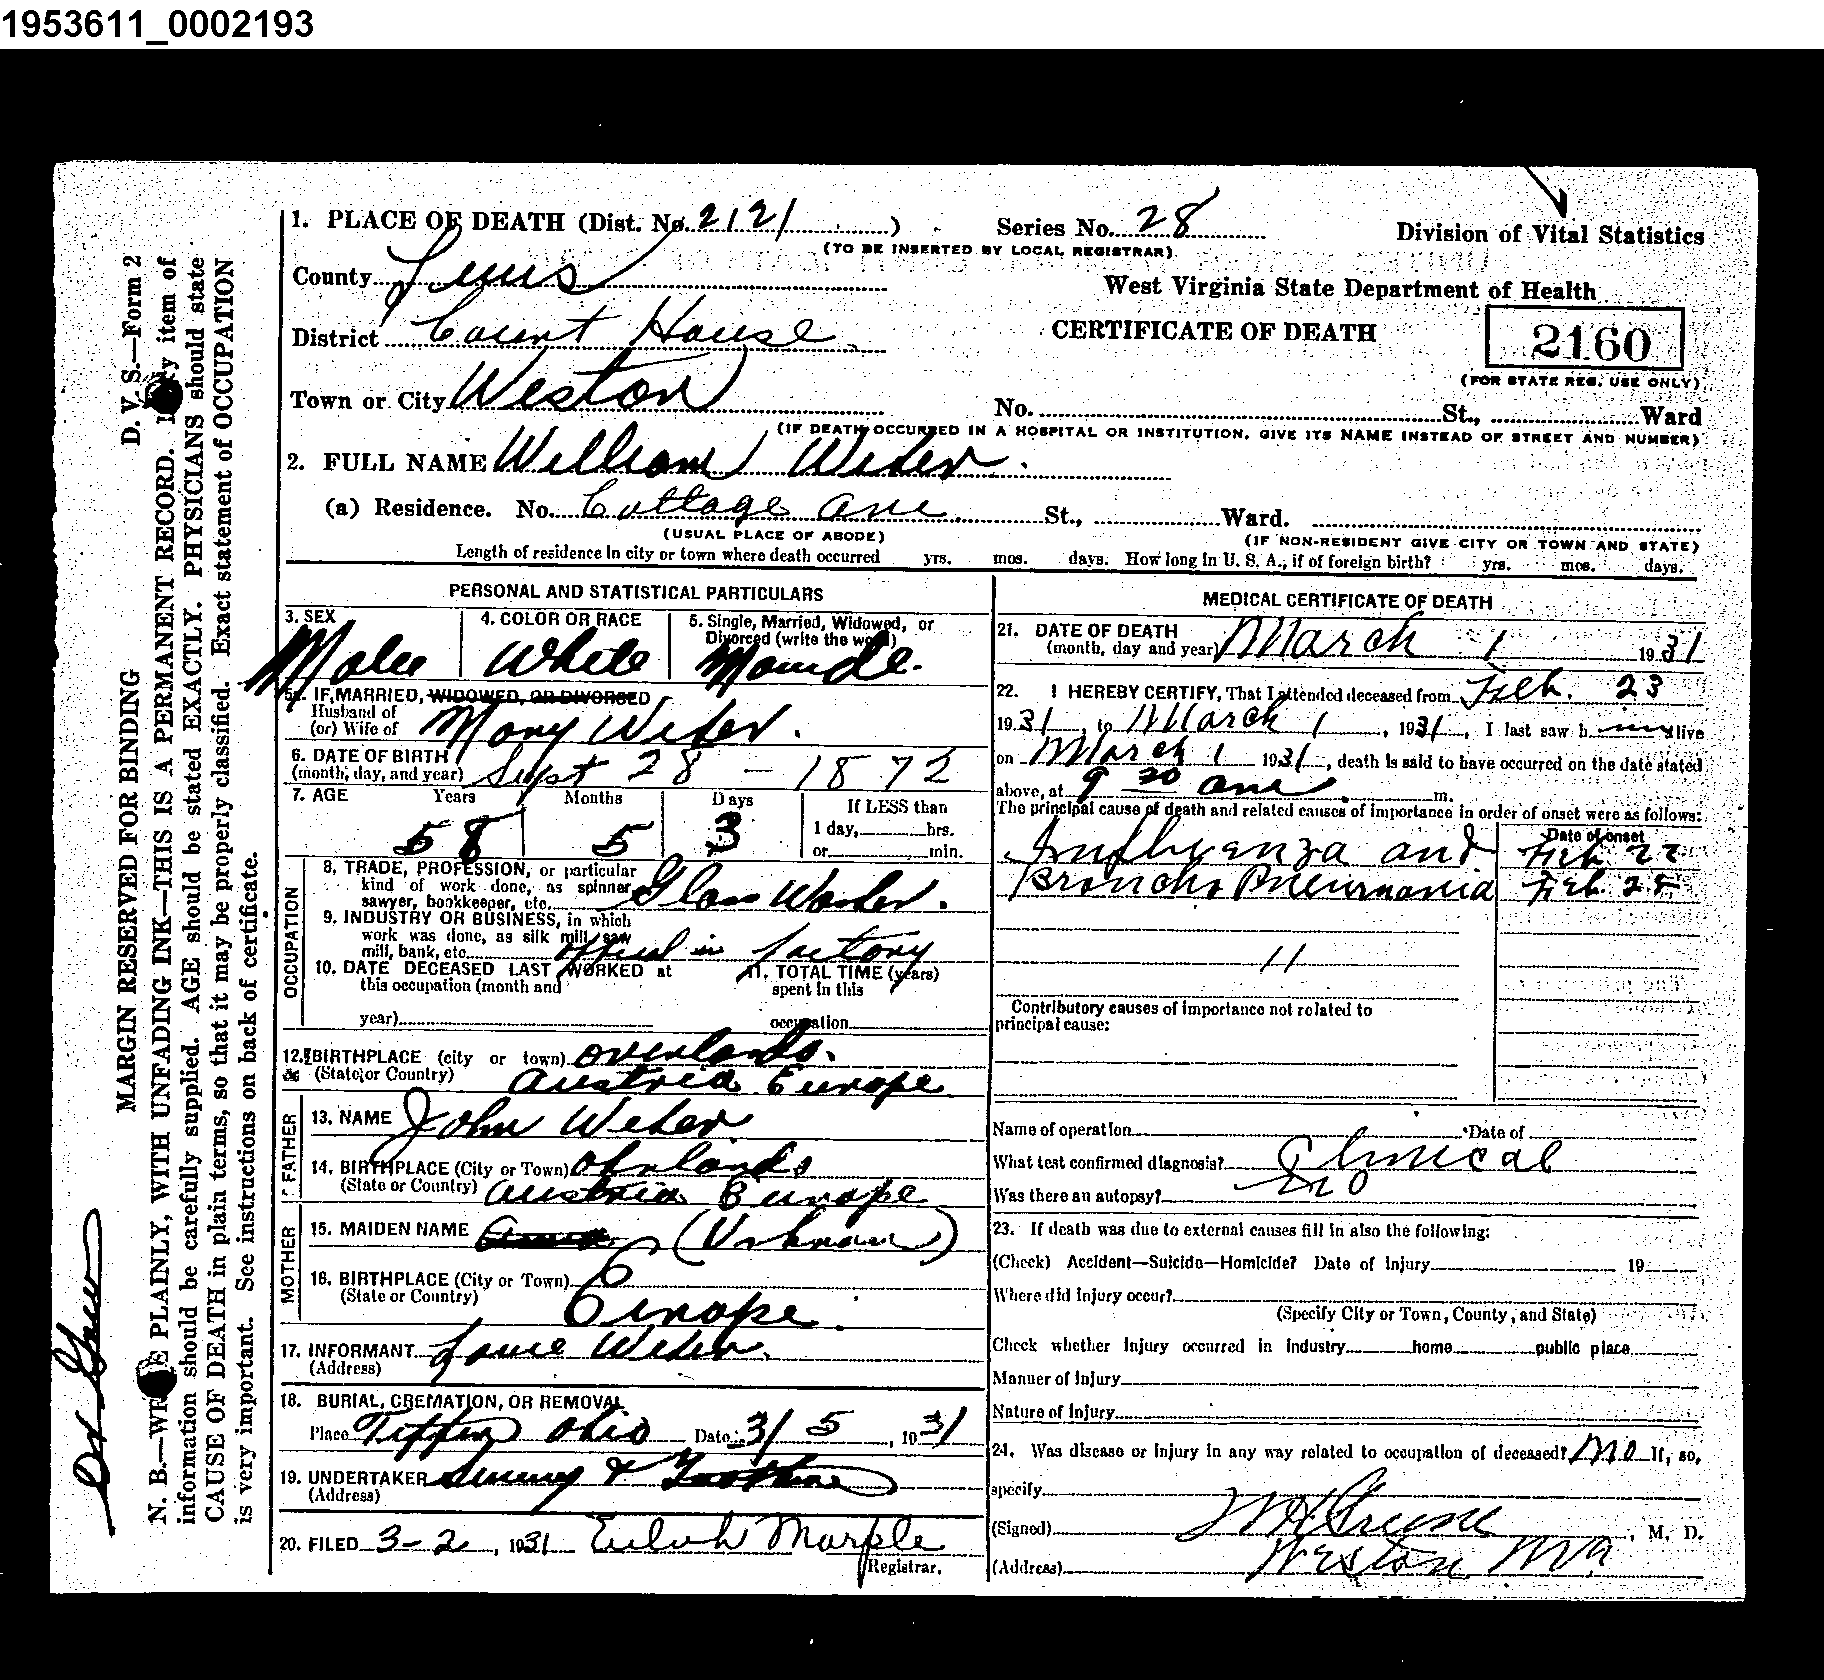 1953611_0002193
1. PLACE OF DEATH (Dist. No. 2121 )
Series No. 28
(TO BE INSERTED BY LOCAL REGISTRAR)
Division of Vital Statistics
County Lewis
West Virginia State Department of Health
District Court House
CERTIFICATE OF DEATH
2160
(FOR STATE REG. USE ONLY)
Town or City Weston
No. St., Ward
(IF DEATH OCCURRED IN A HOSPITAL OR INSTITUTION, GIVE ITS NAME INSTEAD OF STREET AND NUMBER)
2. FULL NAME William Weber.
(a) Residence. No. Cottage Ave St., Ward.
(USUAL PLACE OF ABODE)
(IF NON-RESIDENT GIVE CITY OR TOWN AND STATE)
Length of residence in city or town where death occurred yrs. mos. days. How long in U. S. A., if of foreign birth? yrs. mos. days.
PERSONAL AND STATISTICAL PARTICULARS
3. SEX
4. COLOR OR RACE
5. Single, Married, Widowed, or
Divorced (write the word)
Male White
5a. IF MARRIED, WIDOWED, OR DIVORCED
Husband of
(or) Wife of Mary Weber.
6. DATE OF BIRTH
(month, day, and year) Sept 28 - 1872
7. AGE Years Months Days If LESS than
58 5 3
1 day, hrs.
or min.
OCCUPATION
8. TRADE, PROFESSION, or particular
kind of work done, as spinner,
sawyer, bookkeeper, etc. Glass Worker.
9. INDUSTRY OR BUSINESS, in which
work was done, as silk mill, saw
mill, bank, etc. in factory
10. DATE DECEASED LAST WORKED at
this occupation (month and
year)
11. TOTAL TIME (years)
spent in this
occupation
12. BIRTHPLACE (city or town)
(State or Country) Austria Europe
FATHER
13. NAME John Weber
14. BIRTHPLACE (City or Town)
(State or Country) Austria Europe
MOTHER
15. MAIDEN NAME (Unknown)
16. BIRTHPLACE (City or Town)
(State or Country) Europe.
17. INFORMANT Weber.
(Address)
18. BURIAL, CREMATION, OR REMOVAL
Place Tiffin Ohio Date 3/5, 1931
19. UNDERTAKER
(Address)
20. FILED 3-2, 1931 Eulah Marple
Registrar.
MEDICAL CERTIFICATE OF DEATH
21. DATE OF DEATH
(month, day and year) March 1 1931
22. I HEREBY CERTIFY, That I attended deceased from Feb. 23
1931, to March 1, 1931, I last saw him alive
on March 1 1931, death is said to have occurred on the date stated
above, at 9 30 am. m.
The principal cause of death and related causes of importance in order of onset were as follows:
Date of onset
Influenza and Feb 22
Broncho Pneumonia Feb 25
11
Contributory causes of importance not related to
principal cause:
Name of operation Date of
What test confirmed diagnosis? Clinical
Was there an autopsy? No
23. If death was due to external causes fill in also the following:
(Check) Accident—Suicide—Homicide? Date of injury 19
Where did injury occur?
(Specify City or Town, County, and State)
Check whether injury occurred in industry home public place
Manner of injury
Nature of injury
24. Was disease or injury in any way related to occupation of deceased? No If, so,
specify
(Signed) , M. D.
(Address) Weston W Va
D. V. S.—Form 2
MARGIN RESERVED FOR BINDING
N. B.—WRITE PLAINLY, WITH UNFADING INK—THIS IS A PERMANENT RECORD. Every item of
information should be carefully supplied. AGE should be stated EXACTLY. PHYSICIANS should state
CAUSE OF DEATH in plain terms, so that it may be properly classified. Exact statement of OCCUPATION
is very important. See instructions on back of certificate.